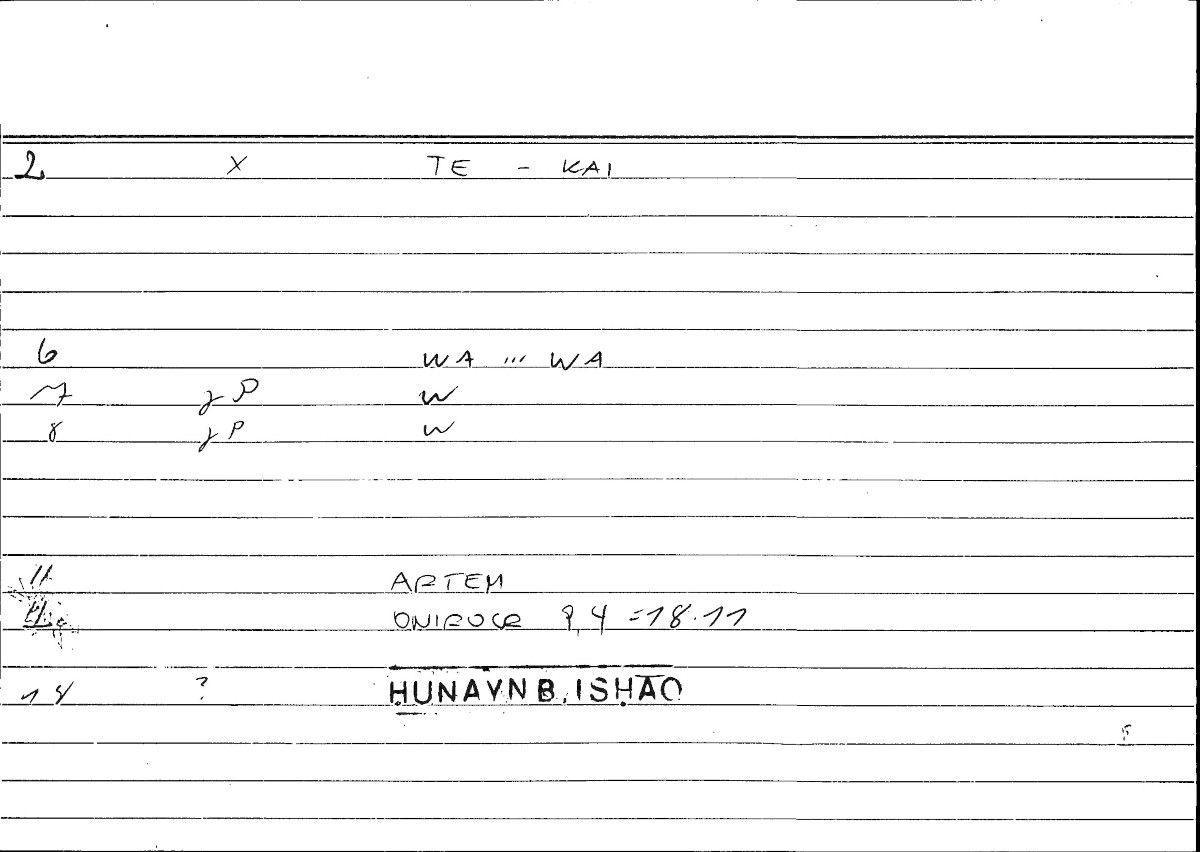 2 X TE - KAI
6 WA ''' WA
7 γP W
8 γP W
11 ARTEM
ONIROCR 9,4 =18.11
14 ? ḤUNAYN B. ISḤĀQ